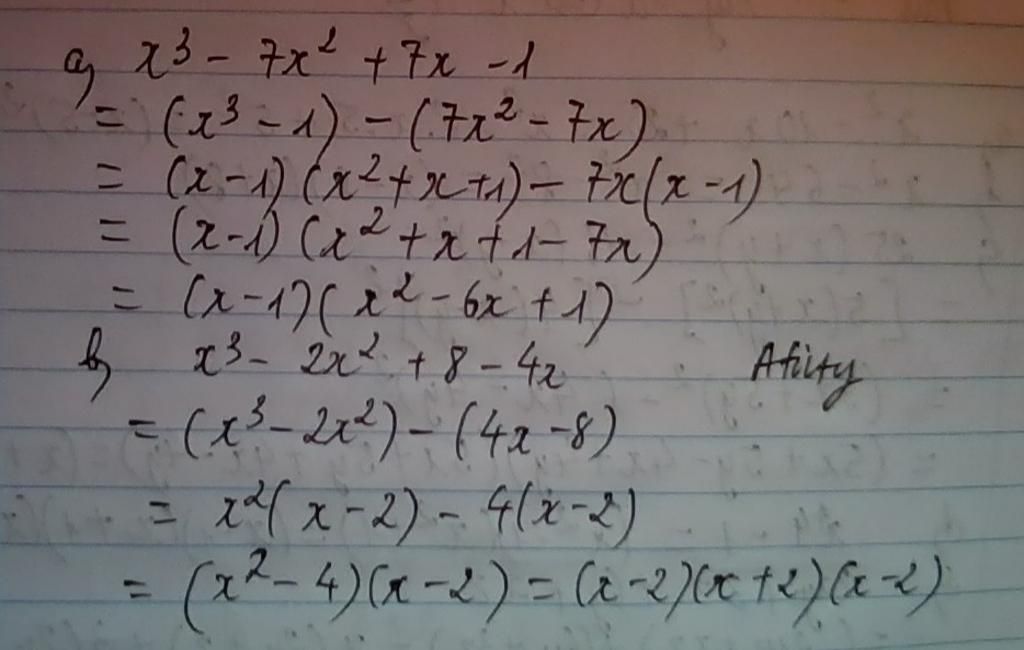 a) x³ - 7x² + 7x - 1
= (x³ - 1) - (7x² - 7x)
= (x - 1)(x² + x + 1) - 7x(x - 1)
= (x - 1)(x² + x + 1 - 7x)
= (x - 1)(x² - 6x + 1)
b) x³ - 2x² + 8 - 4x
= (x³ - 2x²) - (4x - 8)
= x²(x - 2) - 4(x - 2)
= (x² - 4)(x - 2) = (x - 2)(x + 2)(x - 2)